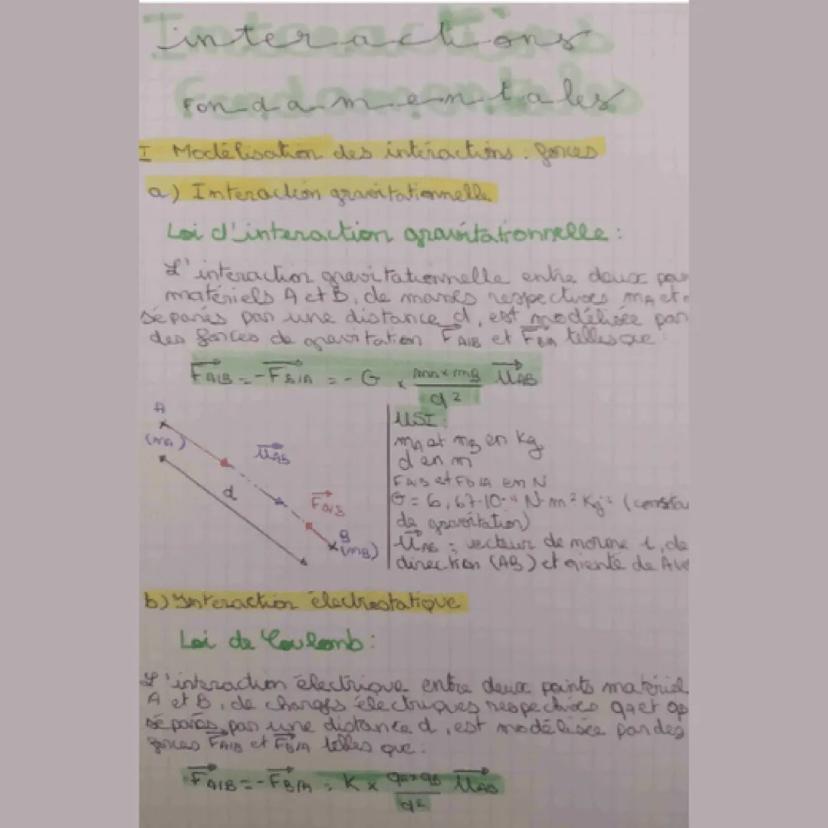 Interactions
Fondamentales
I Modélisation des interactions : forces
a) Interaction gravitationnelle
Loi d'interaction gravitationnelle :
L'interaction gravitationnelle entre deux
matériels A et B, de masses respectives mA et
séparés par une distance d, est modélisée par
des forces de gravitation F A/B et F B/A telles que :
F A/B = - F B/A = - G × mA × mB / d² u AB
A
(mA)
u AB
d
F A/B
B
(mB)
USI :
mA et mB en Kg
d en m
F A/B et F B/A en N
G = 6,67·10 N·m² Kg
de gravitation)
u AB : vecteur de norme 1, de
direction (AB) et orienté de A
b) Interaction électrostatique
Loi de Coulomb :
L'interaction électrique entre deux points matériel
A et B, de charges électriques respectives qA et qB
séparés par une distance d, est modélisée par des
forces F A/B et F B/A telles que :
F A/B = - F B/A = K × qA × qB / d² u AB